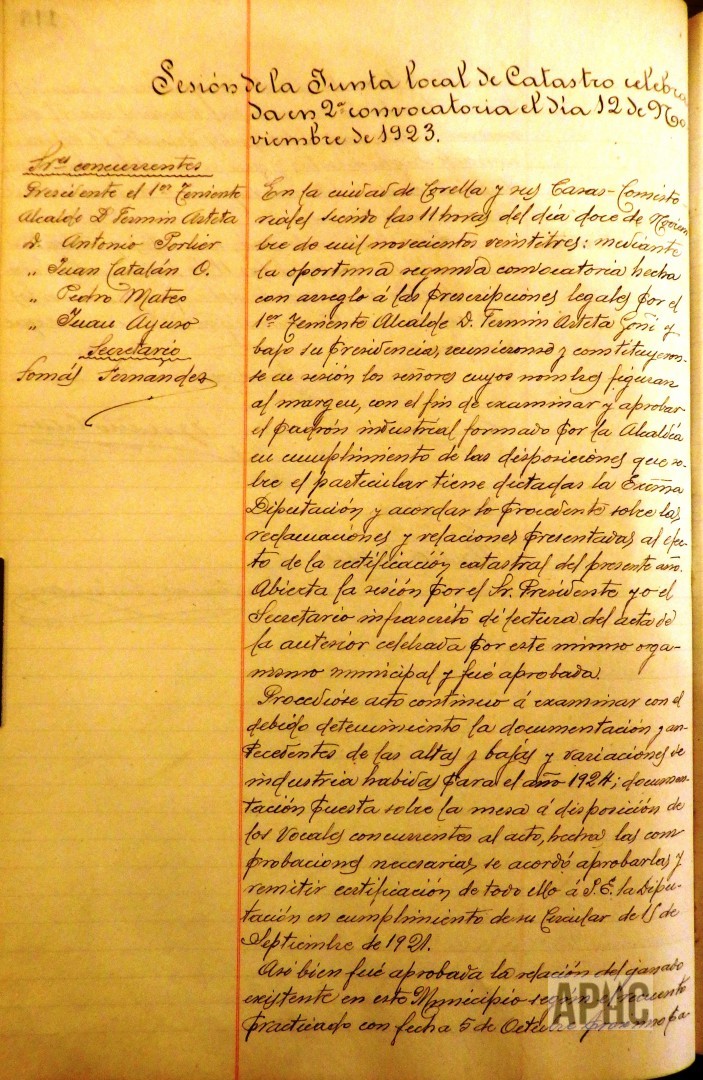 Sesión de la Junta local de Catastro celebra
da en 2ª convocatoria el día 12 de No
viembre de 1923.
Sres concurrentes
Presidente el 1er Teniente
Alcalde D. Fermin Arteta
D. Antonio Portier
" Juan Catalán O.
" Pedro Mateo
" Juan Ayuso
Secretario
Tomás Fernandez
En la ciudad de Corella y sus Casas-Consisto
riales siendo las 11 horas del día doce de Noviem
bre de mil novecientos veintitres: mediante
la oportuna segunda convocatoria hecha
con arreglo á las prescripciones legales por el
1er Teniente Alcalde D. Fermin Arteta Goñi y
bajo su Presidencia, reunieronse y constituyeron-
se en sesión los señores cuyos nombres figuran
al margen, con el fin de examinar y aprobar
el padrón industrial formado por la Alcaldía
en cumplimiento de las disposiciones que so-
bre el particular tiene dictadas la Excma
Diputación y acordar lo procedente sobre las
reclamaciones y relaciones presentadas al efec-
to de la rectificación catastral del presente año.
Abierta la sesión por el Sr. Presidente yo el
Secretario infrascrito dí lectura del acta de
la anterior celebrada por este mismo orga-
nismo municipal y fué aprobada.
Procedióse acto continuo á examinar con el
debido detenimiento la documentación y an-
tecedentes de las altas y bajas y variaciones de
industria habidas para el año 1924; documen-
tación puesta sobre la mesa á disposición de
los Vocales concurrentes al acto, hechas las com
probaciones necesarias, se acordó aprobarlas y
remitir certificación de todo ello á S.E. la Dipu-
tación en cumplimiento de su Circular de 15 de
Septiembre de 1921.
Asi bien fué aprobada la relación del ganado
existente en este Municipio segun el recuento
practicado con fecha 5 de Octubre proximo pa
APHC